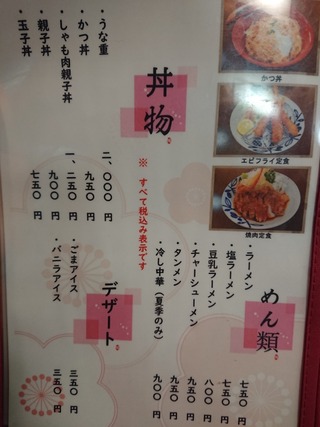 かつ丼
エビフライ定食
焼肉定食
丼物
・うな重 二、〇〇〇円
・かつ丼 九五〇円
・しゃも肉親子丼 一、二五〇円
・親子丼 九〇〇円
・玉子丼 七五〇円
※すべて税込み表示です
めん類
・ラーメン 七五〇円
・塩ラーメン 七五〇円
・豆乳ラーメン 八〇〇円
・チャーシューメン 九五〇円
・タンメン 九五〇円
・冷し中華(夏季のみ) 九〇〇円
デザート
・ごまアイス 三五〇円
・バニラアイス 三五〇円